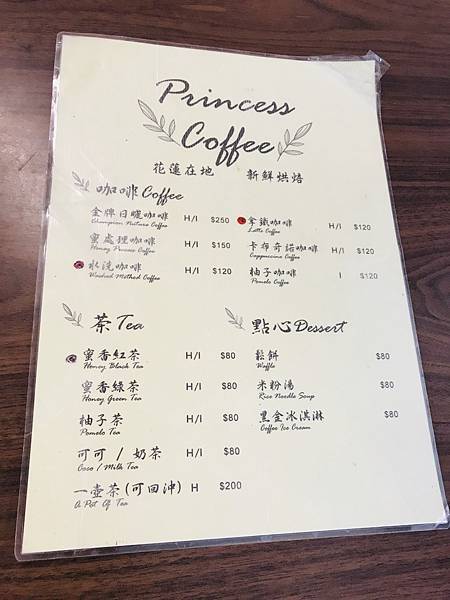 Princess
Coffee
花蓮在地 新鮮烘焙
咖啡 Coffee
金牌日曬咖啡 H/I $250
Champion Nature Coffee
蜜處理咖啡 H/I $150
Honey Process Coffee
水洗咖啡 H/I $120
Washed Method Coffee
拿鐵咖啡 H/I $120
Latte Coffee
卡布奇諾咖啡 H/I $120
Cappuccino Coffee
柚子咖啡 I $120
Pomelo Coffee
茶 Tea
蜜香紅茶 H/I $80
Honey Black Tea
蜜香綠茶 H/I $80
Honey Green Tea
柚子茶 H/I $80
Pomelo Tea
可可 / 奶茶 H/I $80
Coco / Milk Tea
一壺茶(可回沖) H $200
A Pot Of Tea
點心 Dessert
鬆餅 $80
Waffle
米粉湯 $80
Rice Noodle Soup
黑金冰淇淋 $80
Coffee Ice Cream